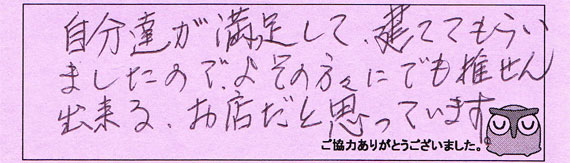 自分達が満足して、建ててもらい
ましたので、よその方々にでも推せん
出来る、お店だと思っています。
ご協力ありがとうございました。